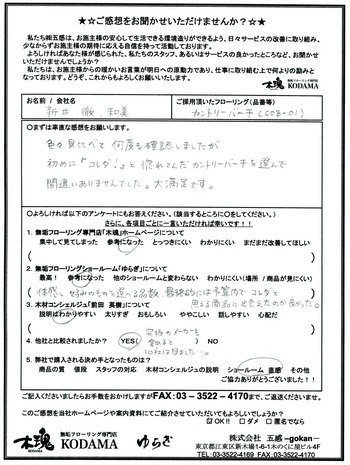 ★☆ご感想をお聞かせいただけませんか？☆★
私たち㈱五感は、お施主様の安心して生活できる環境造りができるよう、日々サービスの改善に取り組み、
少なからずお施主様の期待に応える自信を持って活動しております。
よろしければあなた様が感じられた、私たちのスタッフ、あるいはサービスの良かったところなど、お聞かせ
いただけませんでしょうか？
私たちは、お施主様からの暖かいお言葉が明日への原動力であり、仕事に取り組む上で何よりの励みと
なっております。どうぞ、これからもよろしくお願いいたします。
木魂 無垢フローリング専門店 KODAMA
お名前 / 会社名
新井 徹、和美
ご採用頂いたフローリング（品番等）
カントリーバーチ（C08-01）
○まずは率直な感想をお願いします。
色々見比べて何度も確認しましたが
初めに「コレダ!」と惚れこんだカントリーバーチを選んで
間違いありませんでした。大満足です。
○よろしければ以下のアンケートにもお答えください。（該当するところに○をしてください。）
さらに、各項目ごとに一言いただければ幸いです！！
1. 無垢フローリング専門店「木魂」ホームページについて
集中して見てしまった 参考になった とっつきにくい わかりにくい まだまだ改善してほしい
2. 無垢フローリングショールーム「ゆらぎ」について
最高！ 参考になった 他のショールームと変わらない わかりにくい（場所 / 商品が見にくい）
思える商品に出会えたのが良かった。
3. 木材コンシェルジュ「前田 英樹」について
説明はわかりやすい 太りすぎ おもしろい ややこしい 話しやすい 心配だ
4. 他社と比較されましたか？ YES（
）NO
5. 弊社で購入される決め手となったものは？
商品の質 値段 スタッフの対応 木材コンシェルジュの説明 ショールーム 直感 その他
ご協力ありがとうございました！！
ご記入くださいましたらお手数をおかけしますがFAX:03-3522-4170まで、ご返送くださいませ。
このご感想を当社ホームページや案内資料にてご紹介させていただいてもよろしいでしょうか？
☑OK!! □ダメ □匿名でなら
木魂 無垢フローリング専門店 KODAMA ゆらぎ
株式会社 五感 -gokan-
東京都江東区新木場1-6-1木のくに屋ビル4F
TEL:03-3522-4169 FAX:03-3522-4170